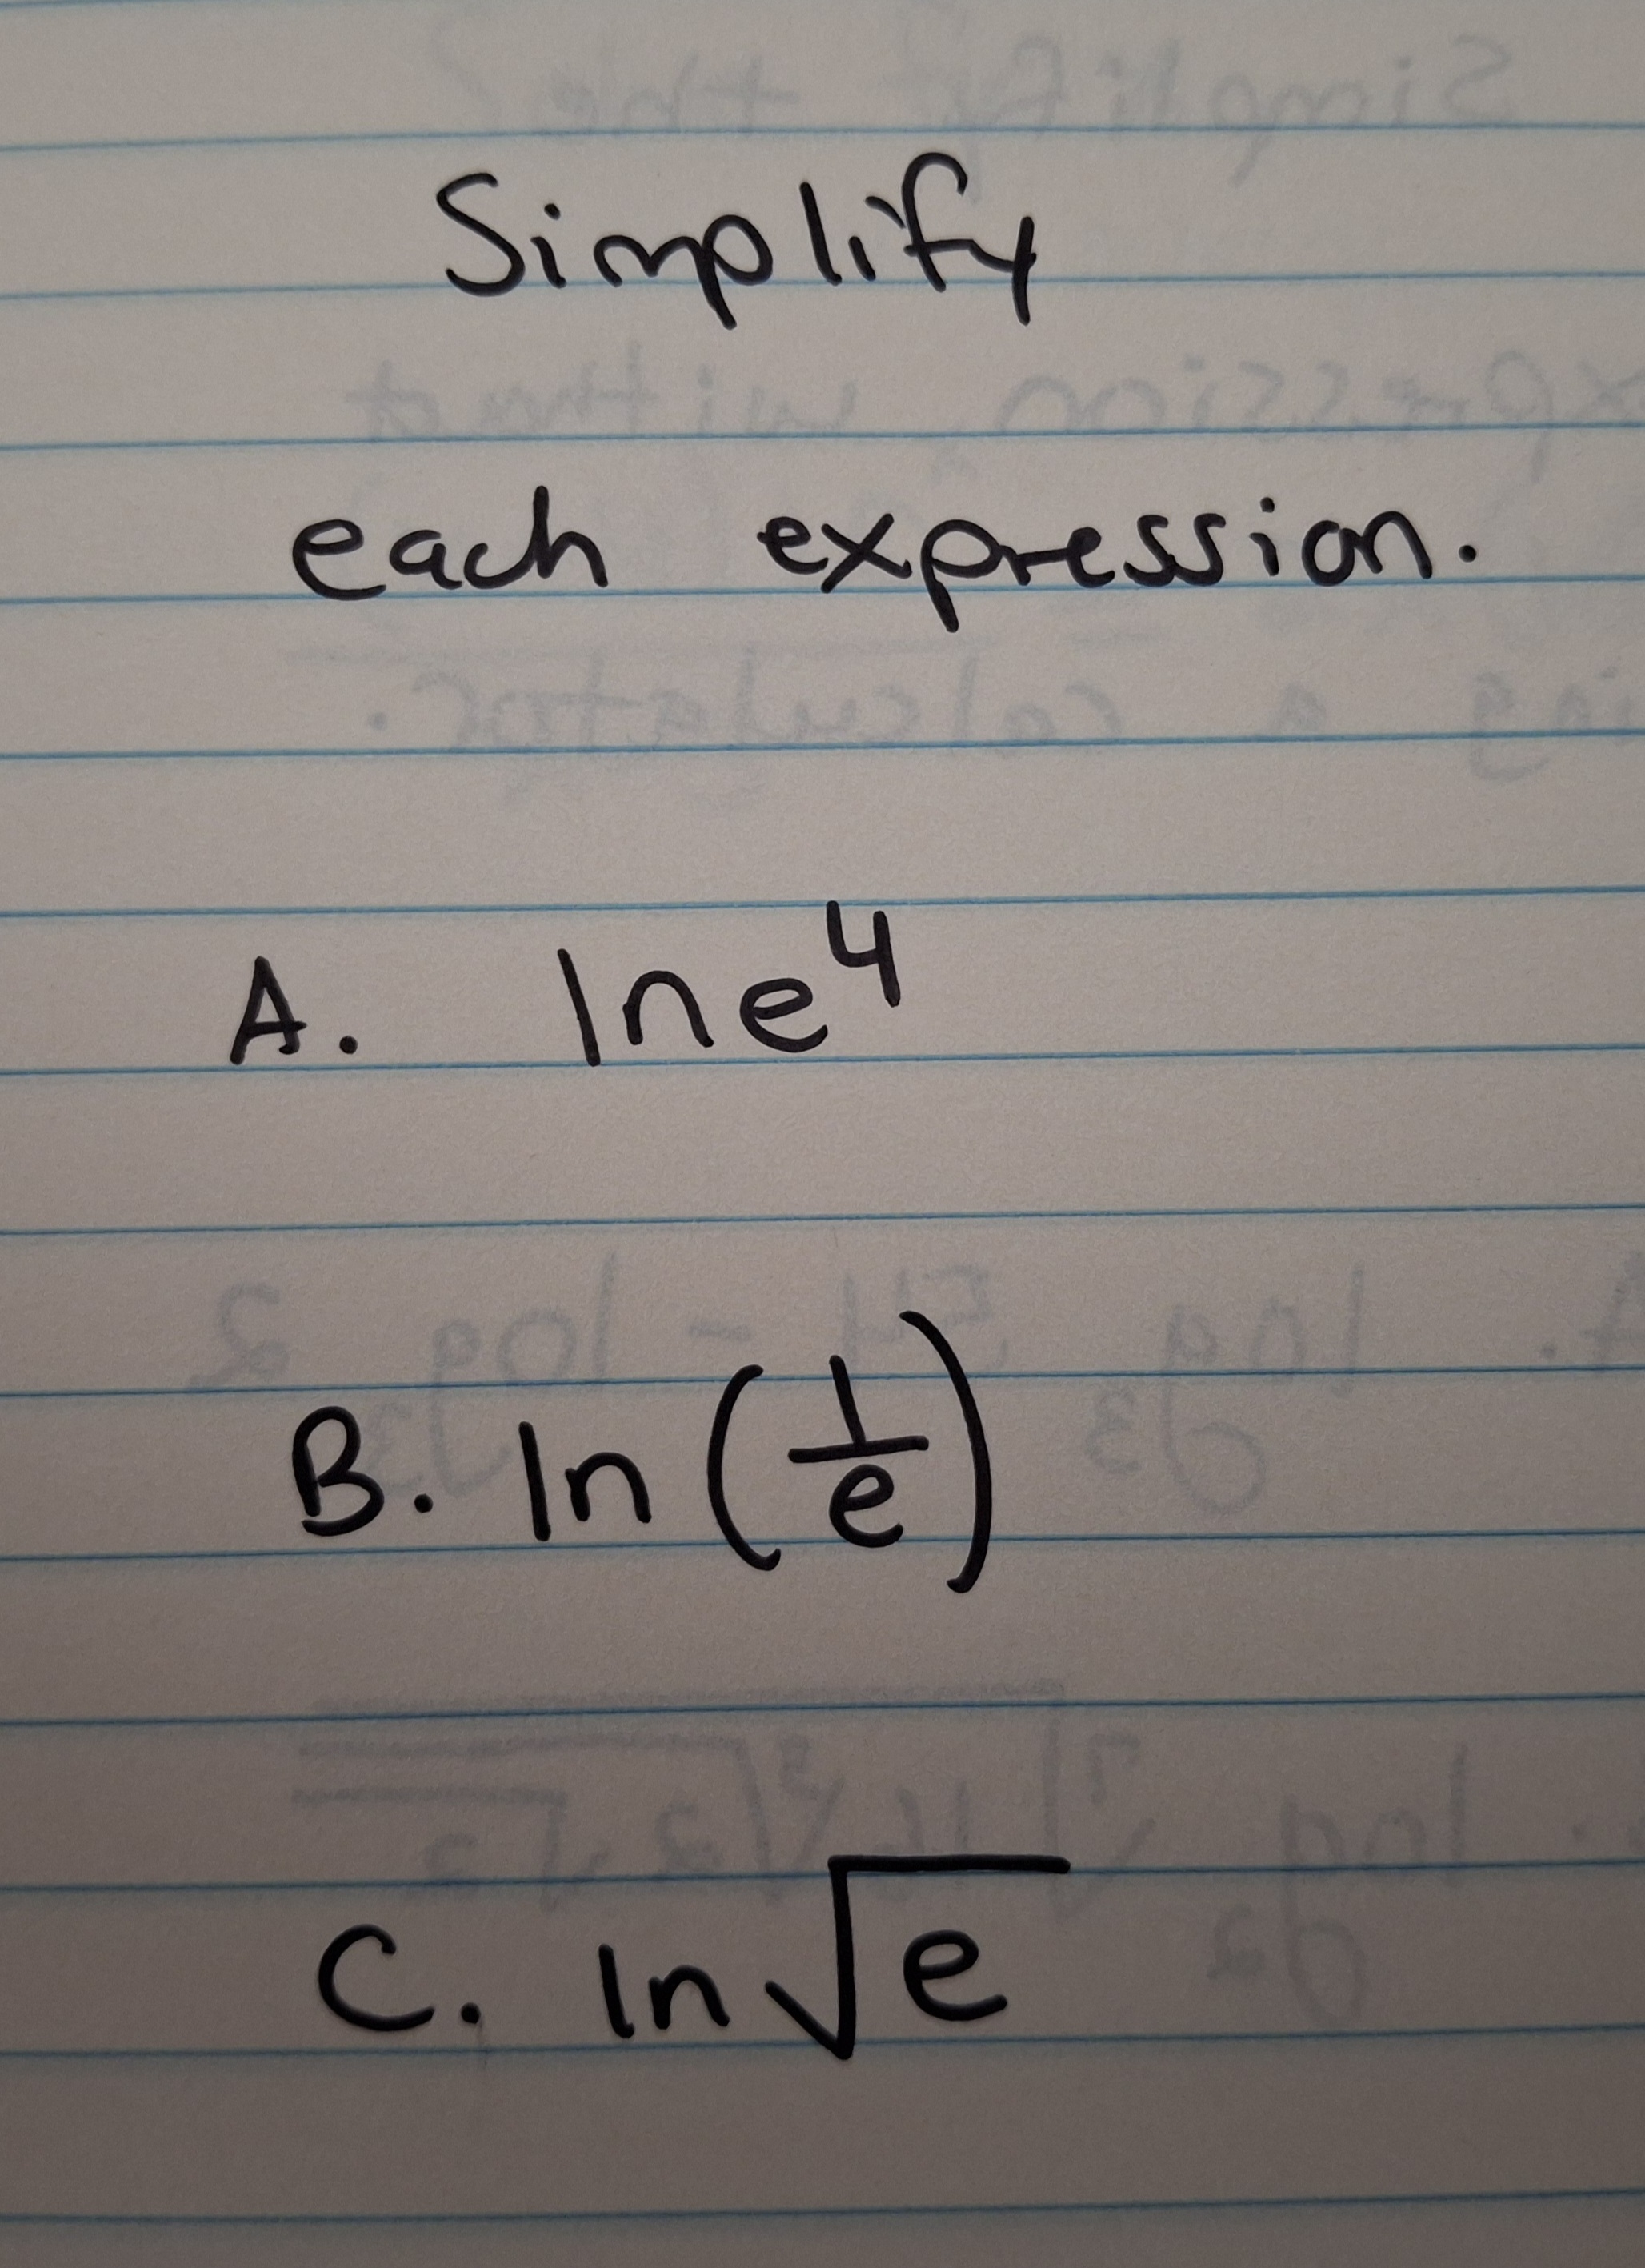 Simplify
each expression.
A. ln e⁴
B. ln (1/e)
C. ln √e